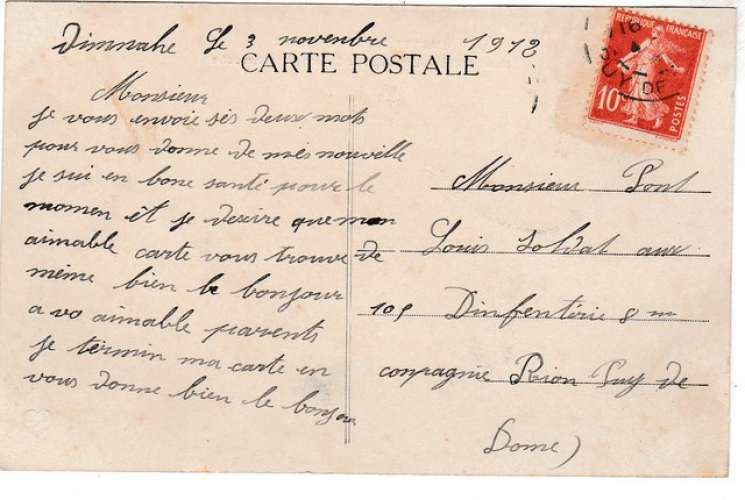 Dimnahe Le 3 novenbre 1912
CARTE POSTALE
Monsieur
je vous envoie sés deux mots
pour vous donne de més nouvelle
je sui en bone santé pour le
momen èt je desire que mon
aimable carte vous trouve de
même bien le bonjour
a vo aimable parents
je termin ma carte en
vous donne bien le bonjour
REPUBLIQUE FRANÇAISE
10
POSTES
Y DE
Monsieur Pont
Louis Soldat aux
105 Dinfentérie 8 m
conpagnie Rion Puy de
Dome)